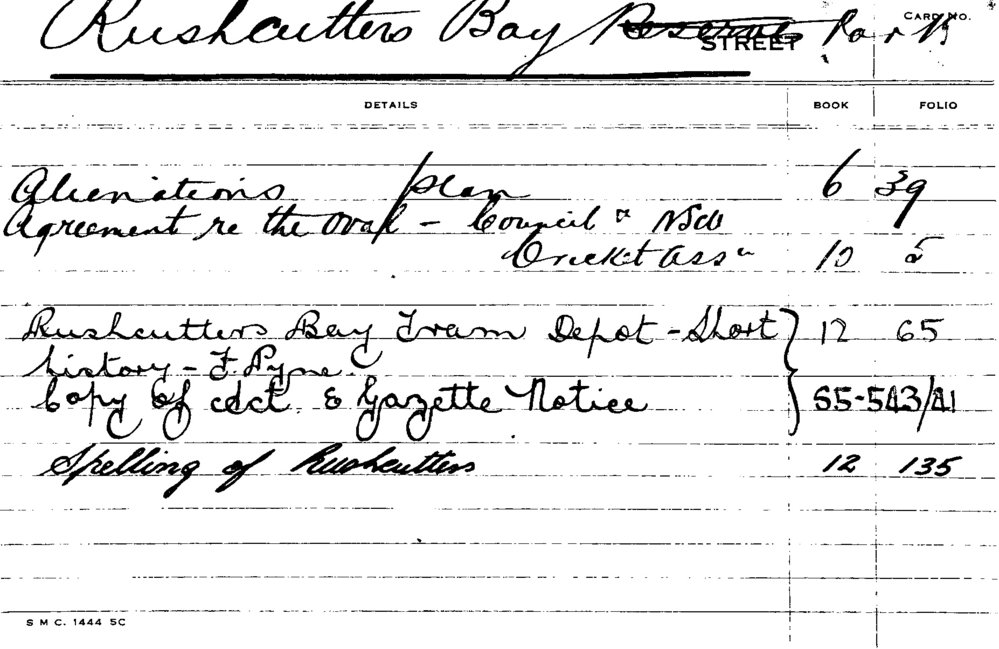 Rushcutters Bay Reserve STREET Park CARD NO.
DETAILS BOOK FOLIO
Alienations plan 6 39
Agreement re the Oval - Council & NSW
Cricket Assn 10 5
Rushcutters Bay Tram Depot - Short 12 65
history - F. Pyne.
Copy of Act & Gazette Notice S5-543/41
Spelling of Rushcutters 12 135
S M C. 1444 5C